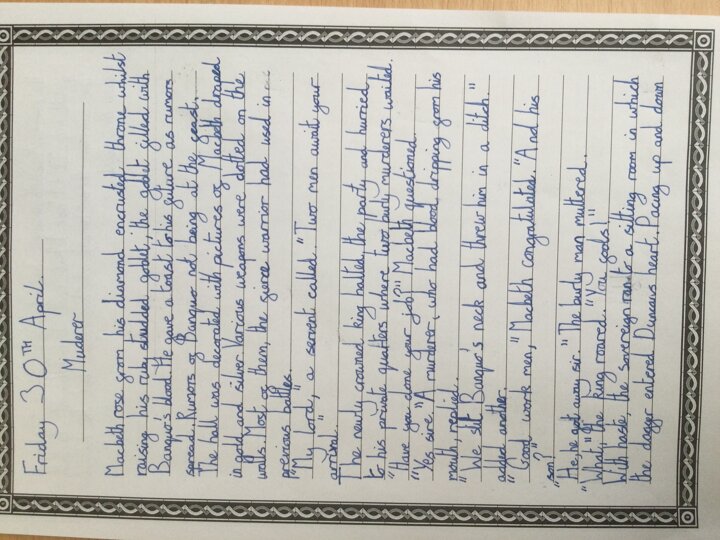 Friday 30TH April.
Murderer
Macbeth rose from his diamond encrusted throne whilst
raising his ruby studded goblet; the goblet filled with
Banquo's blood. He gave a toast to his future as rumors
spread. Rumors of Banquo not being at the feast.
The hall was decorated with pictures of Macbeth draped
in gold and silver. Various weapons were dotted on the
walls. Most of them, the fierce warrior had used in
previous battles.
"My lord", a servent called. "Two men await your
arrival."
The newly crowned king halted the party and hurried
to his private quarters where two burly murderers waited.
"Have you done your job?" Macbeth questioned.
"Yes sire." A murderer, who had blood dripping from his
mouth, replied.
"We slit Banquo's neck and threw him in a ditch."
added another.
"Good work men," Macbeth congratulated. "And his
son?"
"He, he got away sir." The burly man muttered.
"What," the king roared. "you fools!"
With haste, the sovereign ran to a sitting room in which
the dagger entered Duncans heart. Pacing up and down